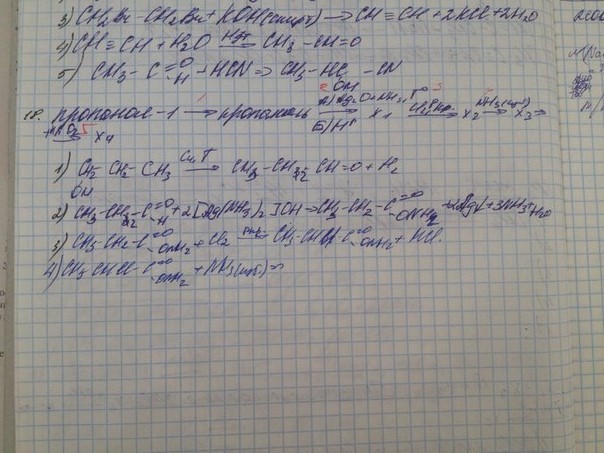 3) CH₂Br – CH₂Br + KOH(спирт) → CH ≡ CH + 2KCl + 2H₂O
4) CH ≡ CH + H₂O → CH₃ – CH=O
5) CH₃ – C =O –H + HCN ⇒ CH₃ – HC – CN
OH
18. пропанол-1 → пропаналь а) Ag₂O + NH₃, t° б) H⁺ x₁ Cl₂, Pкр. x₂ NH₃(изб) x₃ ⇒
x₄
1) CH₂ CH₂ – CH₃ Cu, T → CH₃ – CH₂ – CH=O + H₂
OH
2) CH₃ – CH₂ – C =O –H + 2[Ag(NH₃)₂]OH → CH₃ – CH₂ – C =O –ONH₄ + 2Ag↓ + 3NH₃ + H₂O
3) CH₃ – CH₂ – C =O –ONH₂ + Cl₂ → CH₃ – CHCl – C =O –ONH₂ + HCl.
4) CH₃ CHCl – C =O –ONH₂ + NH₃(изб) ⇒